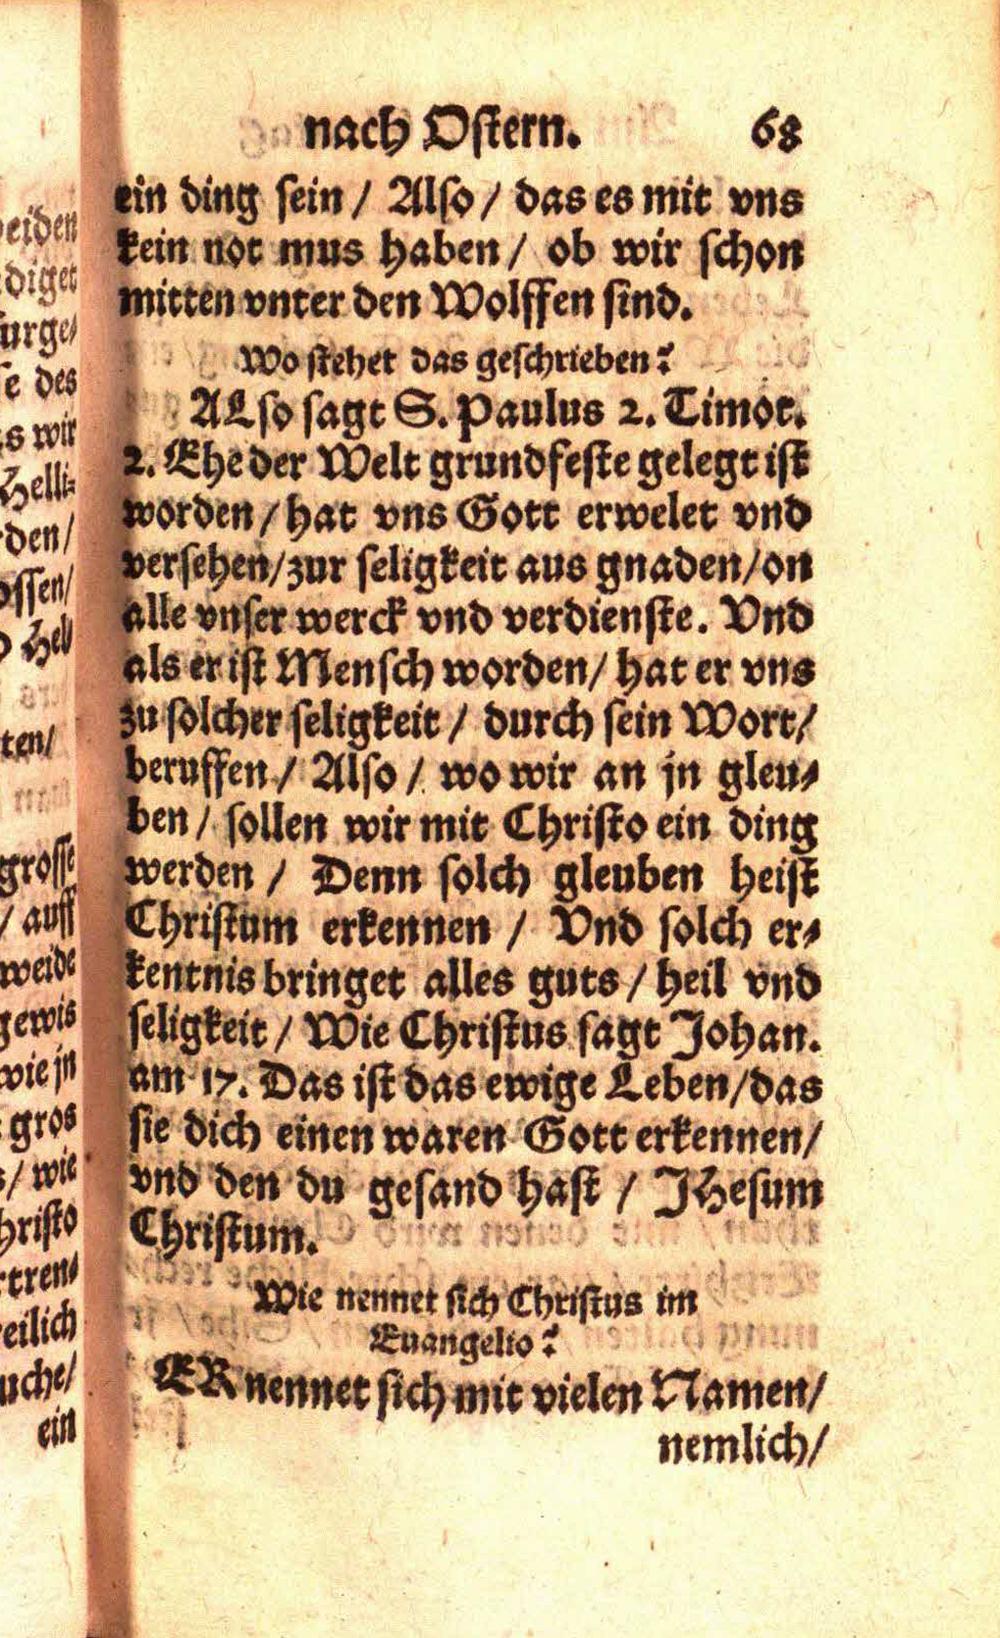 nach Ostern. 68
ein ding sein / Also / das es mit vns
kein not mus haben / ob wir schon
mitten vnter den Wolffen sind.
Wo stehet das geschrieben?
ALso sagt S. Paulus 2. Timot.
2. Ehe der Welt grundfeste gelegt ist
worden / hat vns Gott erwelet vnd
versehen / zur seligkeit aus gnaden / on
alle vnser werck vnd verdienste. Vnd
als er ist Mensch worden / hat er vns
zu solcher seligkeit / durch sein Wort /
beruffen / Also / wo wir an jn gleu-
ben / sollen wir mit Christo ein ding
werden / Denn solch gleuben heist
Christum erkennen / Vnd solch er-
kentnis bringet alles guts / heil vnd
seligkeit / Wie Christus sagt Johan.
am 17. Das ist das ewige Leben / das
sie dich einen waren Gott erkennen /
vnd den du gesand hast / JHesum
Christum.
Wie nennet sich Christus im
Euangelio?
ER nennet sich mit vielen Namen /
nemlich /